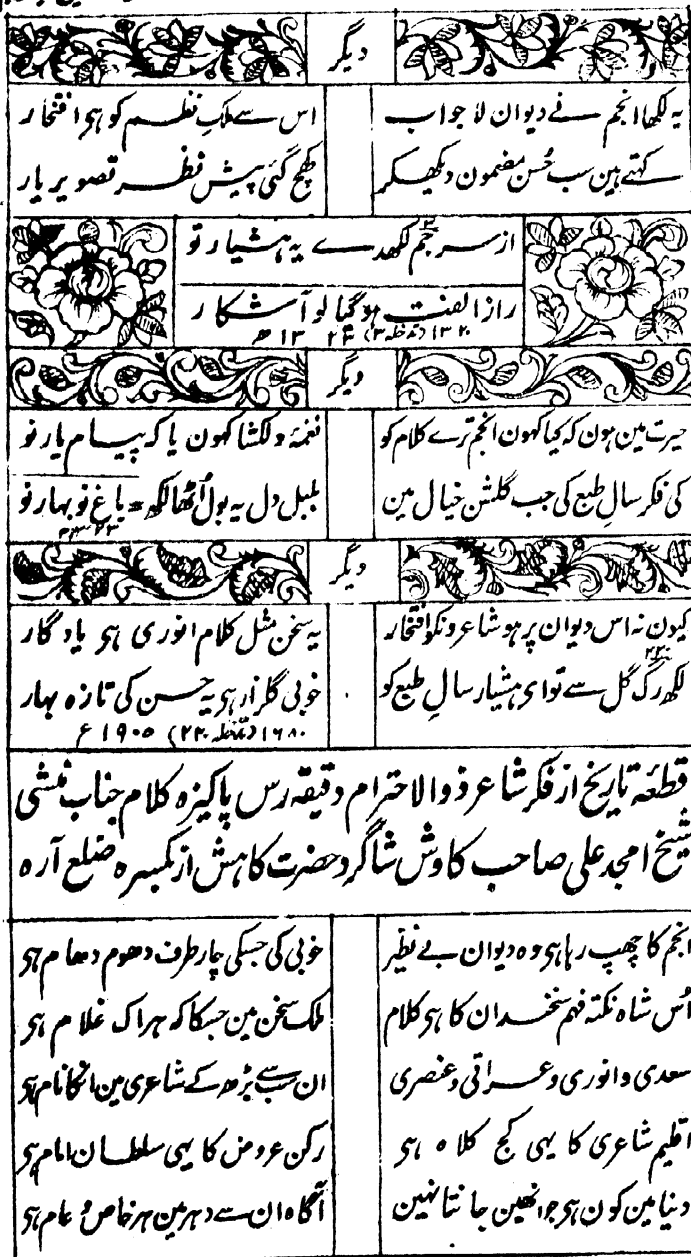 دیگر
یہ لکھا انجم نے دیوان لا جواب
اس سے ملک نظم کو ہی افتخار
کہتے ہین سب حُسن مضمون دیکھکر
کھچ گئی پیش نظر تصویر یار
از سر جم لکھدے یہ ہشیار تو
۳
راز الفت ہو گیا لو آشکار
۱۳۲۰ (تدخلہ ۳) ۱۳۲۳ ھ
دیگر
حیرت مین ہون کہ کیا کہون انجم ترے کلام کو
نغمۂ دلکشا کہون یا کہ پیام یار نو
کی فکر سال طبع کی جب گلشن خیال مین
بلبل دل یہ بول اُٹھا لکھ باغ نو بہار نو
۱۳۲۳
دیگر
کیون نہ اس دیوان پر ہو شاعرونکو افتخار
یہ سخن مثل کلام انوری ہی یادگار
لکھ رگ گل سے تو ای ہشیار سال طبع کو
۲۲۰
خوبی گلزار ہی یہ حسن کی تازہ بہار
۱۶۸۰ (تدخلہ ۲۲۰) ۱۹۰۵ ع
قطعۂ تاریخ از فکر شاعر ذوالاحترام دقیقہ رس پاکیزہ کلام جناب منشی
شیخ امجد علی صاحب کاوش شاگرد حضرت کاہش از بکسرہ ضلع آرہ
انجم کا چھپ رہا ہی وہ دیوان بے نظیر
خوبی کی جسکی چار طرف دھوم دھام ہی
اُس شاہ نکتہ فہم سخندان کا ہی کلام
ملک سخن مین جسکا کہ ہر اک غلام ہی
سعدی و انوری و عراقی و عنصری
ان سب سے بڑھ کے شاعری مین انکا نام ہی
اقلیم شاعری کا یہی کج کلاہ ہی
رکن عروض کا یہی سلطان امام ہی
دنیا مین کون ہی جو انھین جانتا نہین
آگاہ ان سے دہر مین ہر خاص و عام ہی